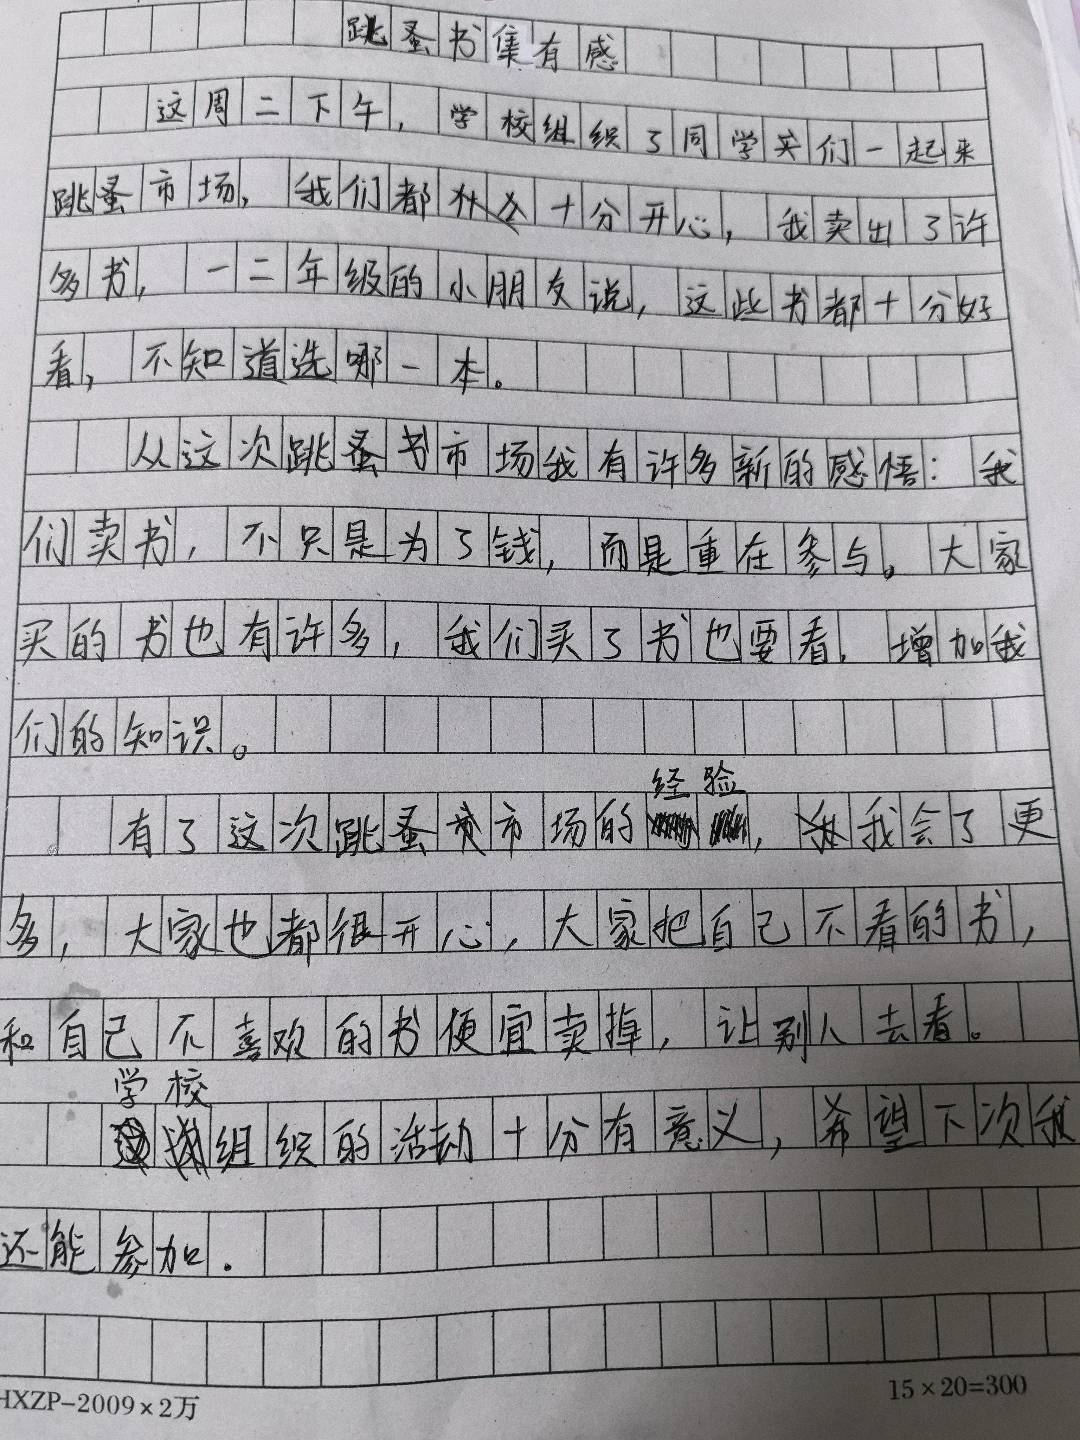 跳蚤书集有感
这周二下午，学校组织了同学们一起来
跳蚤市场，我们都十分开心，我卖出了许
多书，一二年级的小朋友说，这些书都十分好
看，不知道选哪一本。
从这次跳蚤书市场我有许多新的感悟：我
们卖书，不只是为了钱，而是重在参与。大家
买的书也有许多，我们买了书也要看，增加我
们的知识。
经验
有了这次跳蚤市场的，我会了更
多，大家也都很开心，大家把自己不看的书，
和自己不喜欢的书便宜卖掉，让别人去看。
学校
组织的活动十分有意义，希望下次我
还能参加.
HXZP-2009×2万
15×20=300